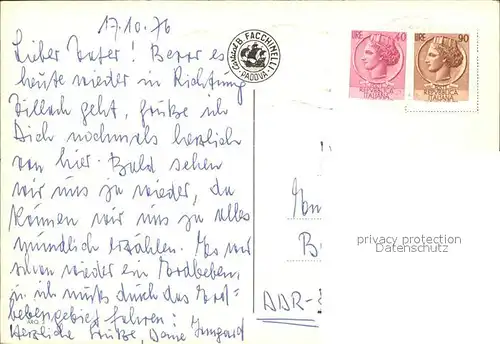 17.10.76
Lieber Vater! Bevor es
heute wieder in Richtung
Villach geht, grüße ich
Dich nochmals herzlich
von hier. Bald sehen
wir uns ja wieder, da
können wir uns ja alles
mündlich erzählen. Es war
schon wieder ein Erdbeben,
ja ich muß durch das Erd=
bebengebiet fahren!
Herzliche Grüße, Deine Irmgard
B. FACCHINELLI
PADOVA
LIRE 40
REPVBBLICA
ITALIANA
LIRE 90
REPVBBLICA
ITALIANA
privacy protection
Datenschutz